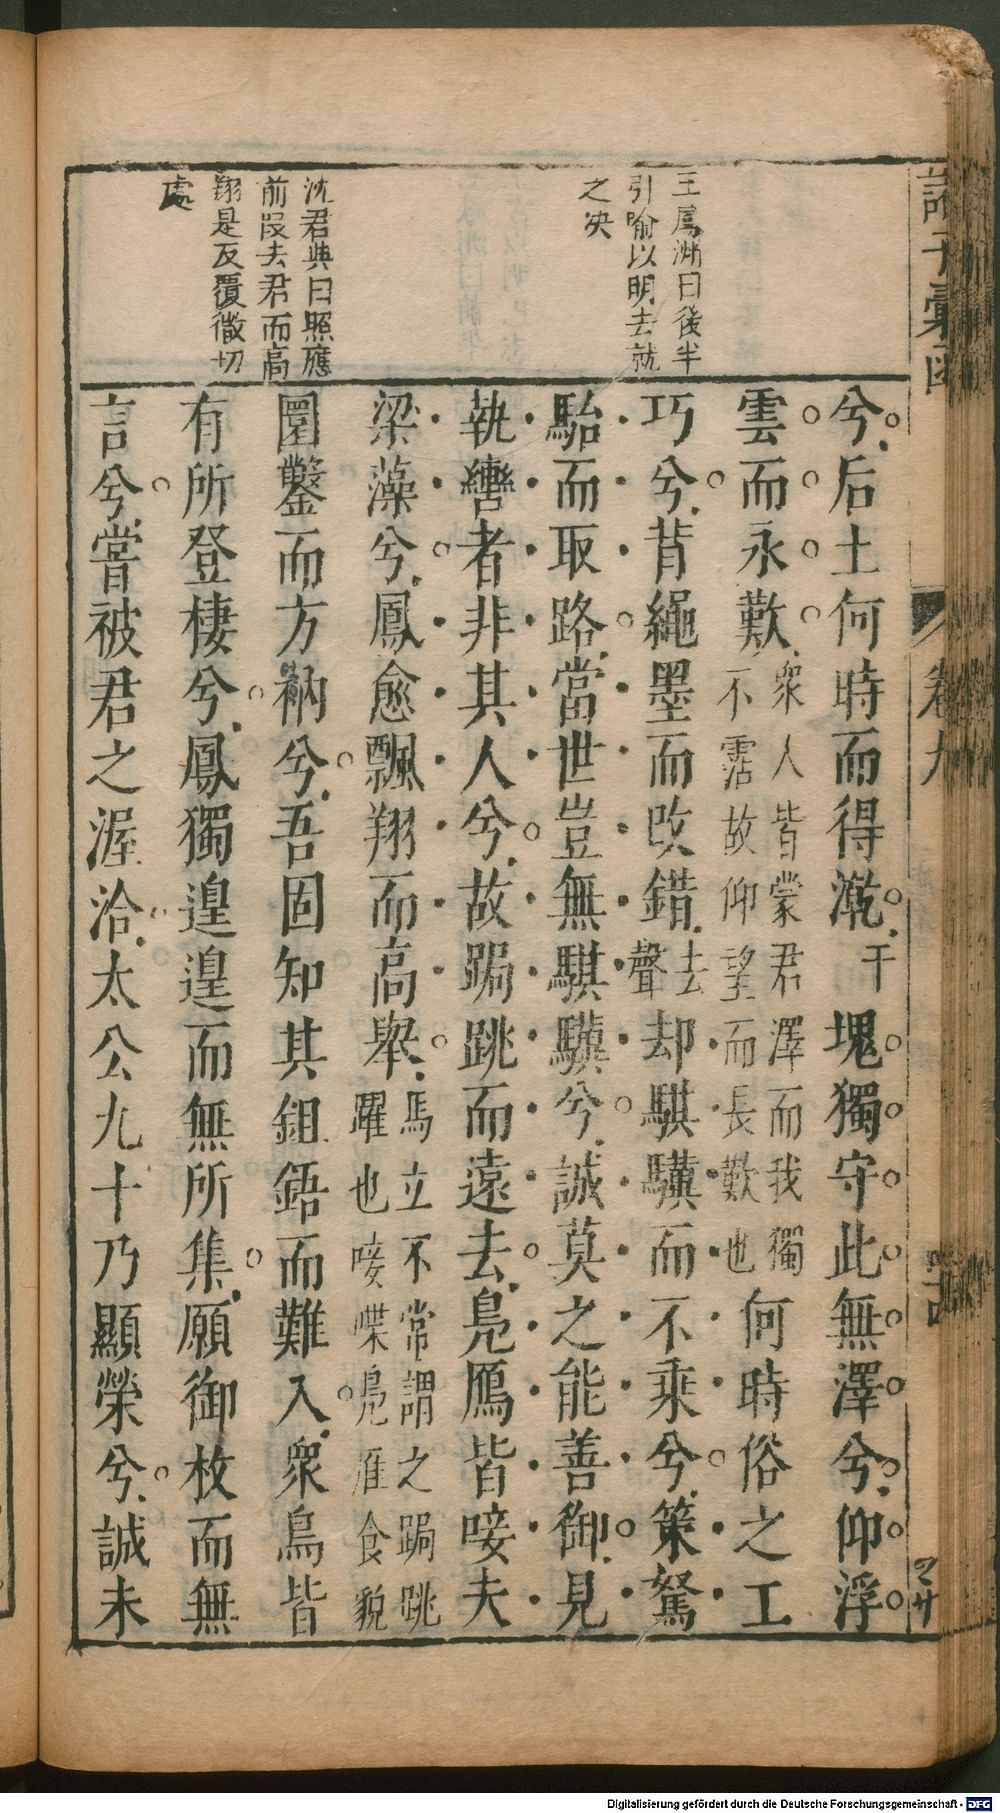 諸子彙函
卷九
王鳳洲曰後半
引喻以明去就
之決
沈君典曰照應
前段去君而高
翔是反覆微切
處
兮后土何時而得漧干塊獨守此無澤兮仰浮
雲而永歎衆人皆蒙君澤而我獨不霑故仰望而長歎也何時俗之工
巧兮背繩墨而改錯去聲却騏驥而不乘兮策駑
駘而取路當世豈無騏驥兮誠莫之能善御見
執轡者非其人兮故跼跳而遠去鳧鴈皆唼夫
梁藻兮鳳愈飄翔而高舉馬立不常謂之跼跳躍也唼喋鳧雁食貌
圜鑿而方衲兮吾固知其鉏鋙而難入衆鳥皆
有所登棲兮鳳獨遑遑而無所集願御枚而無
言兮嘗被君之渥洽太公九十乃顯榮兮誠未
Digitalisierung gefördert durch die Deutsche Forschungsgemeinschaft - DFG